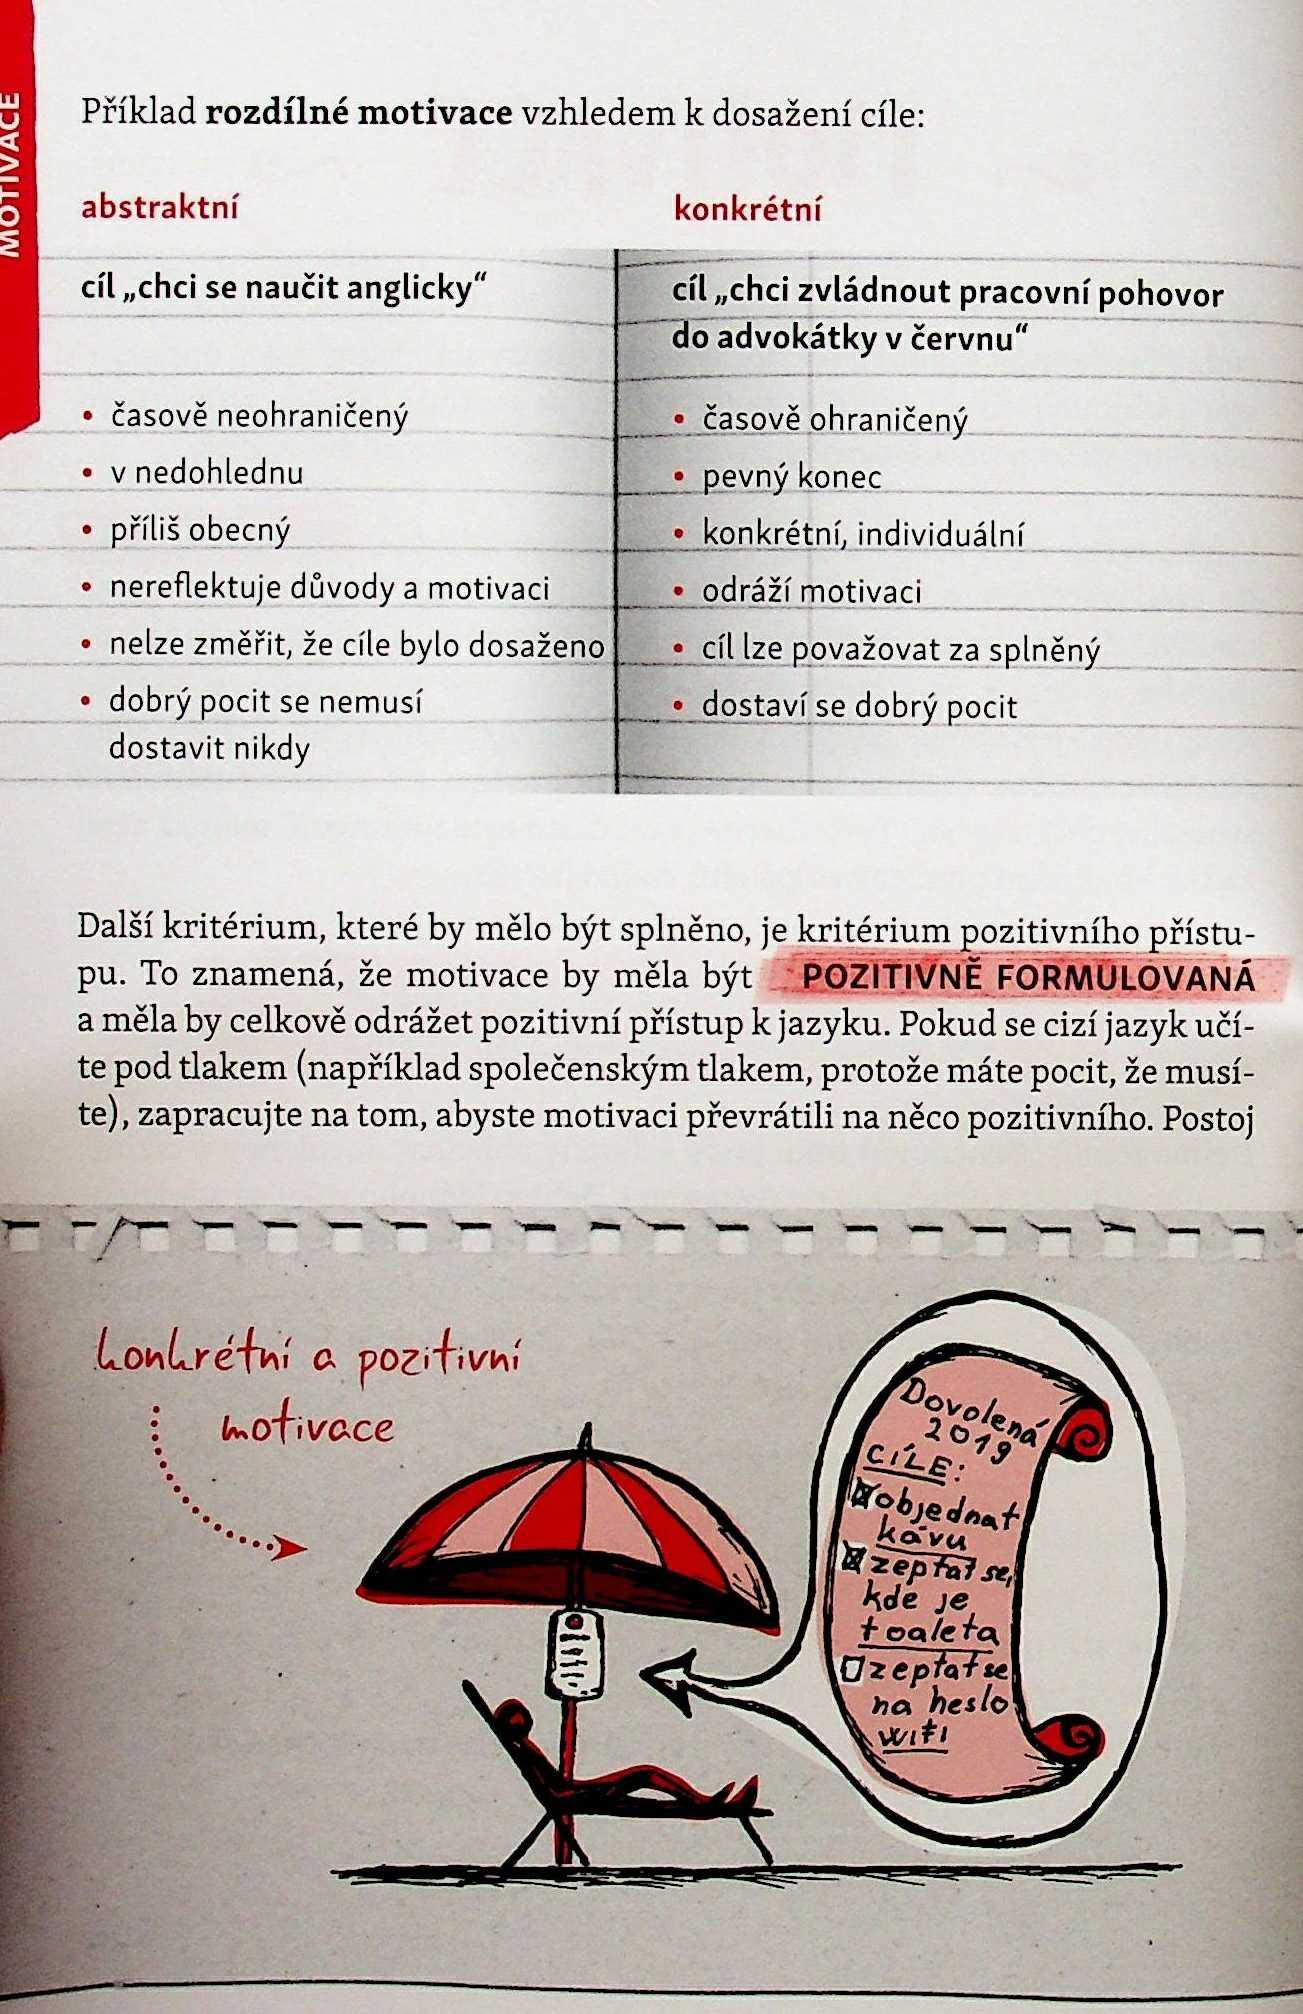 MOTIVACE
Příklad rozdílné motivace vzhledem k dosažení cíle:
abstraktní
cíl „chci se naučit anglicky“
• časově neohraničený
• v nedohlednu
• příliš obecný
• nereflektuje důvody a motivaci
• nelze změřit, že cíle bylo dosaženo
• dobrý pocit se nemusí
dostavit nikdy
konkrétní
cíl „chci zvládnout pracovní pohovor
do advokátky v červnu“
• časově ohraničený
• pevný konec
• konkrétní, individuální
• odráží motivaci
• cíl lze považovat za splněný
• dostaví se dobrý pocit
Další kritérium, které by mělo být splněno, je kritérium pozitivního přístu-
pu. To znamená, že motivace by měla být POZITIVNĚ FORMULOVANÁ
a měla by celkově odrážet pozitivní přístup k jazyku. Pokud se cizí jazyk učí-
te pod tlakem (například společenským tlakem, protože máte pocit, že musí-
te), zapracujte na tom, abyste motivaci převrátili na něco pozitivního. Postoj
konkrétní a pozitivní
motivace
Dovolená
2019
CÍLE:
objednat
kávu
zeptat se,
kde je
toaleta
zeptat se
na heslo
wifi